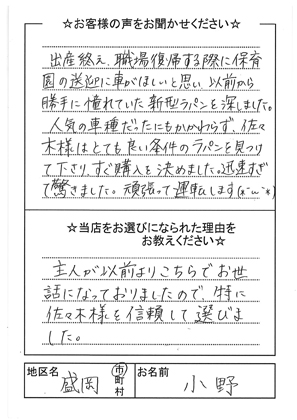 ☆お客様の声をお聞かせください☆
出産終え、職場復帰する際に保育
園の送迎に車がほしいと思い、以前から
勝手に憧れていた新型ラパンを探しました。
人気の車種だったにもかかわらず、佐々
木様はとても良い条件のラパンを見つけ
て下さり、すぐ購入を決めました。迅速すぎ
て驚きました。頑張って運転します(*^ω^*)
☆当店をお選びになられた理由を
お教えください☆
主人が以前よりこちらでお世
話になっておりましたので、特に
佐々木様を信頼して選びま
した。
地区名 盛岡 市町村 お名前 小野